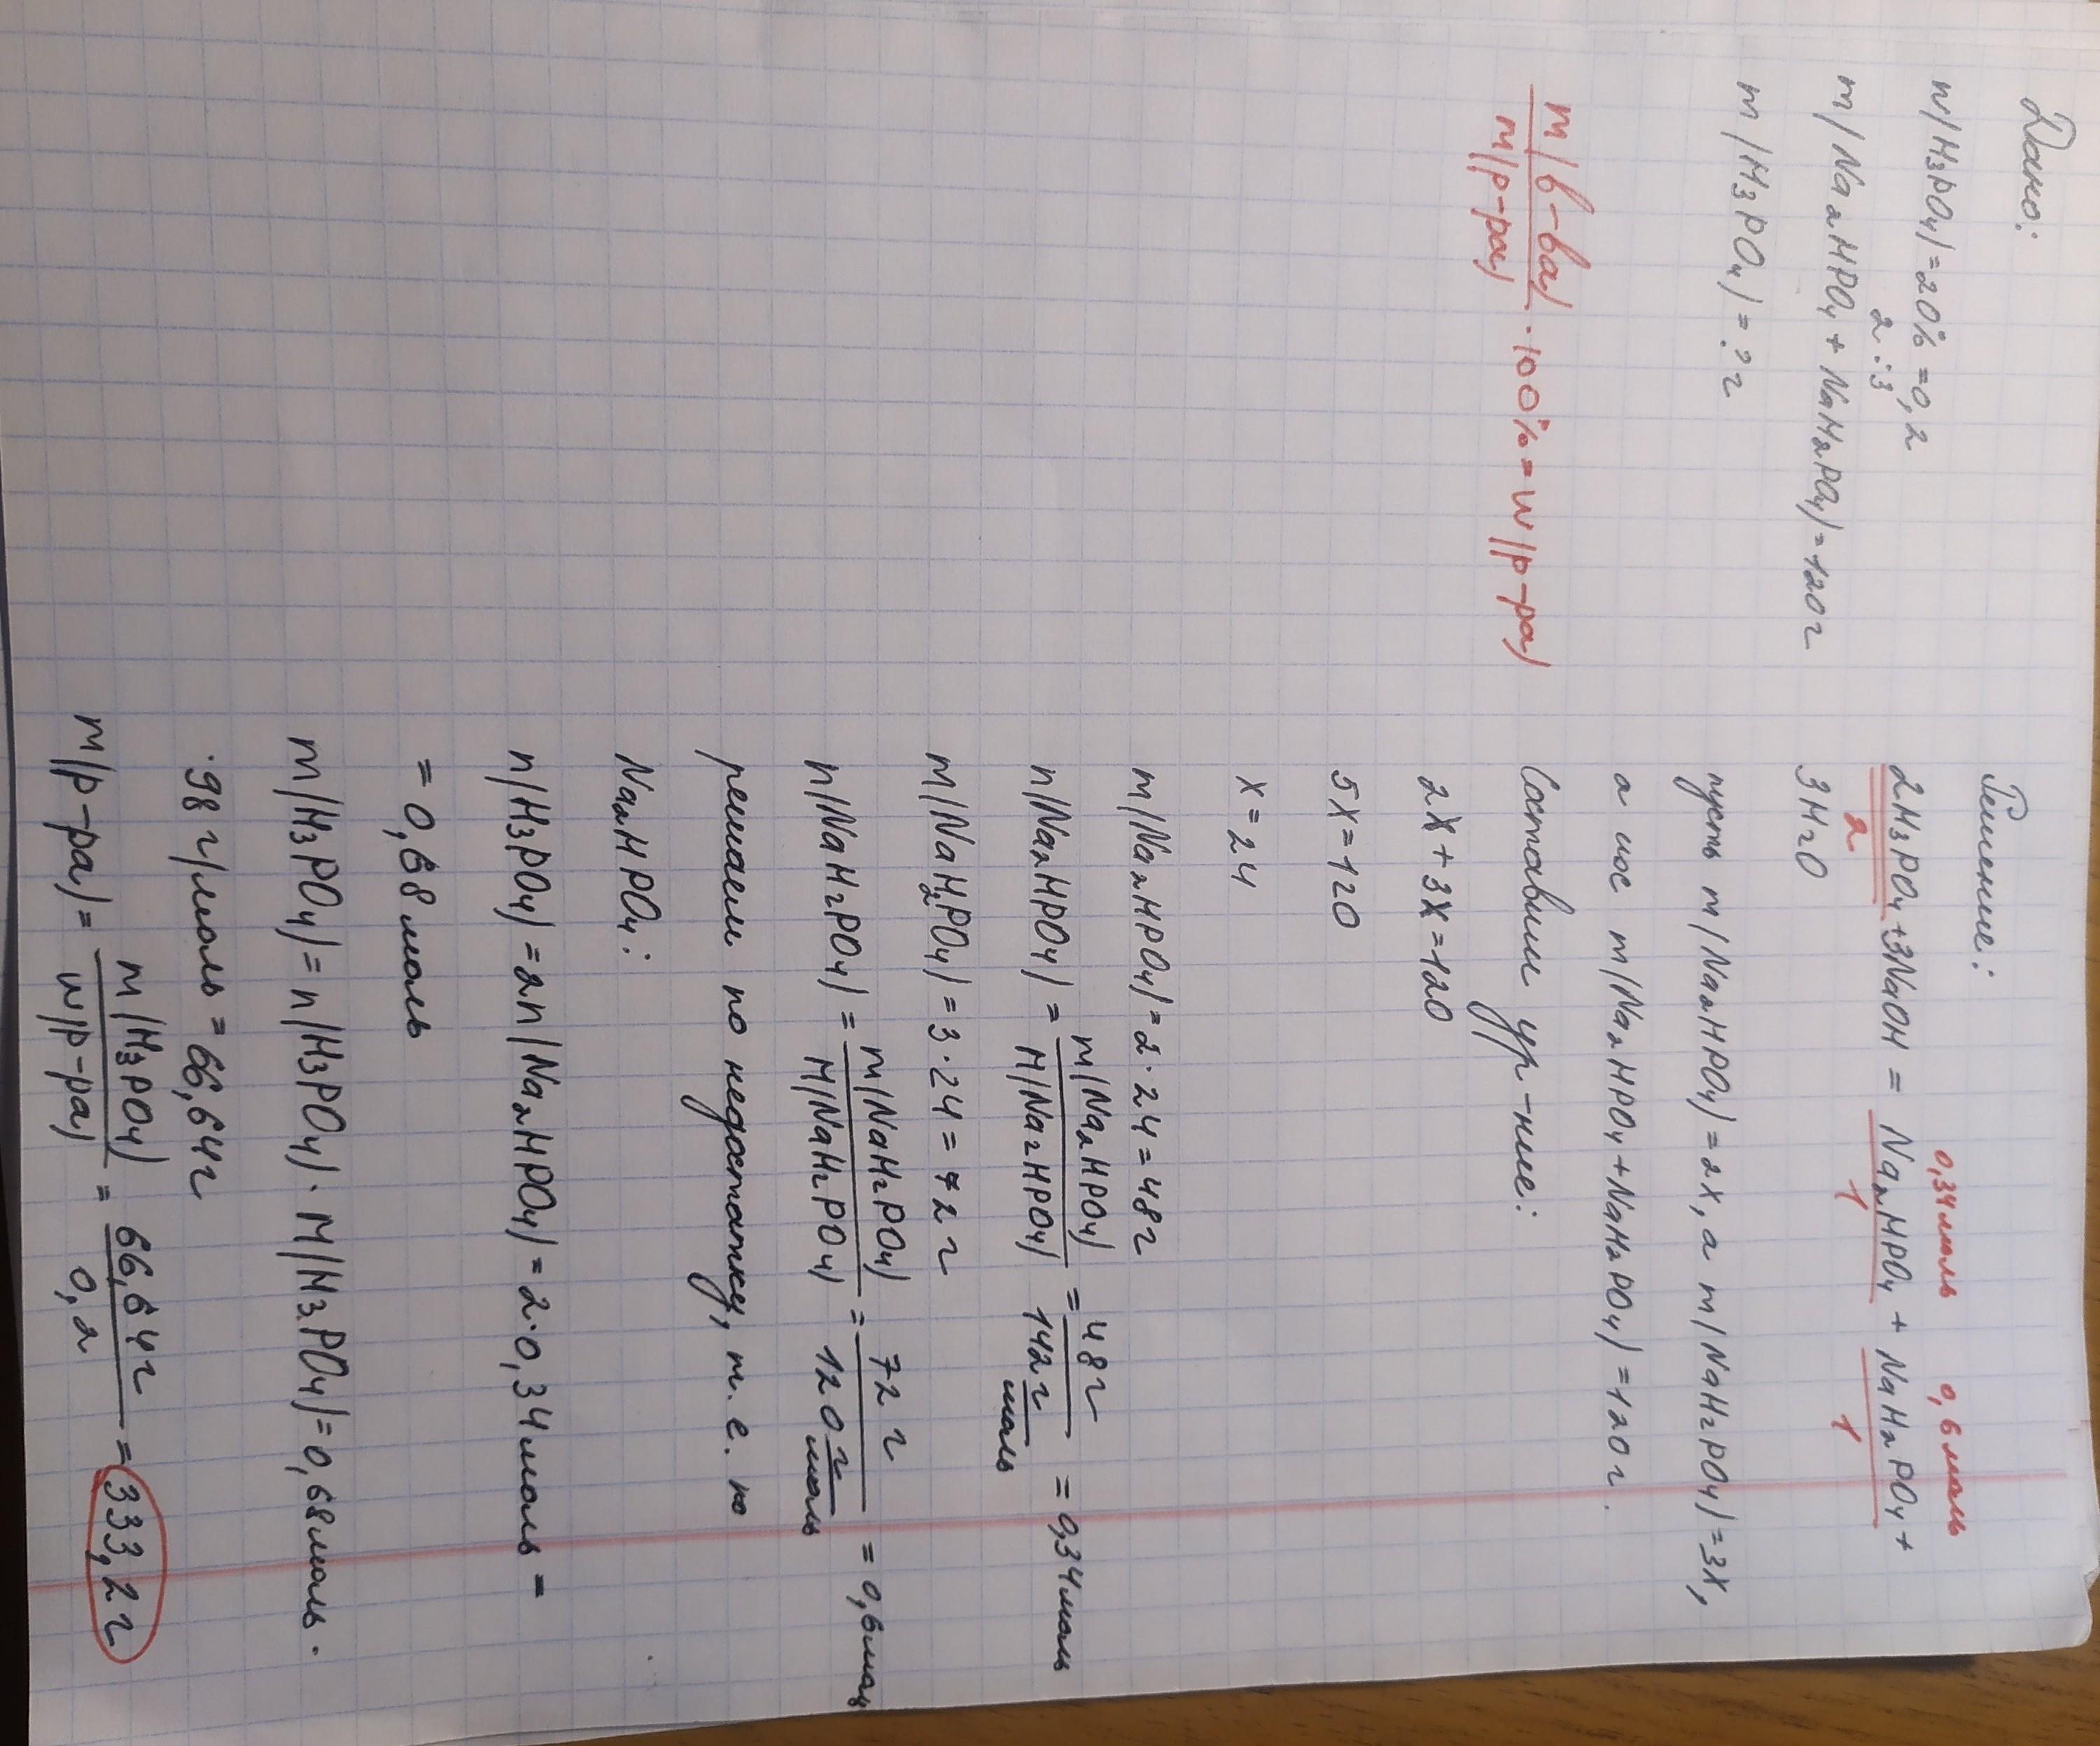 Дано:
w/H₃PO₄/=20%=0,2
2:3
m/Na₂HPO₄+NaH₂PO₄/=120г
m/H₃PO₄/=?г
m/в-ва/
m/р-ра/
·100%=w/р-ра/
Решение:
0,34моль 0,6моль
2H₃PO₄+3NaOH = Na₂HPO₄ + NaH₂PO₄+
2 1 1
3H₂O
пусть m/Na₂HPO₄/=2x, а m/NaH₂PO₄/=3x,
а m/Na₂HPO₄+NaH₂PO₄/=120г.
Составим ур-ние:
2x+3x=120
5x=120
x=24
m/Na₂HPO₄/=2·24=48г
n/Na₂HPO₄/= m/Na₂HPO₄/ / M/Na₂HPO₄/ = 48г / 142 г/моль = 0,34моль
m/NaH₂PO₄/=3·24=72г
n/NaH₂PO₄/= m/NaH₂PO₄/ / M/NaH₂PO₄/ = 72г / 120 г/моль = 0,6моль
решаем по недостатку, т.е. по
Na₂HPO₄:
n/H₃PO₄/=2n/Na₂HPO₄/=2·0,34моль=
=0,68моль
m/H₃PO₄/=n/H₃PO₄/·M/H₃PO₄/=0,68моль·
·98г/моль=66,64г
m/р-ра/= m/H₃PO₄/ / w/р-ра/ = 66,64г / 0,2 =333,2г